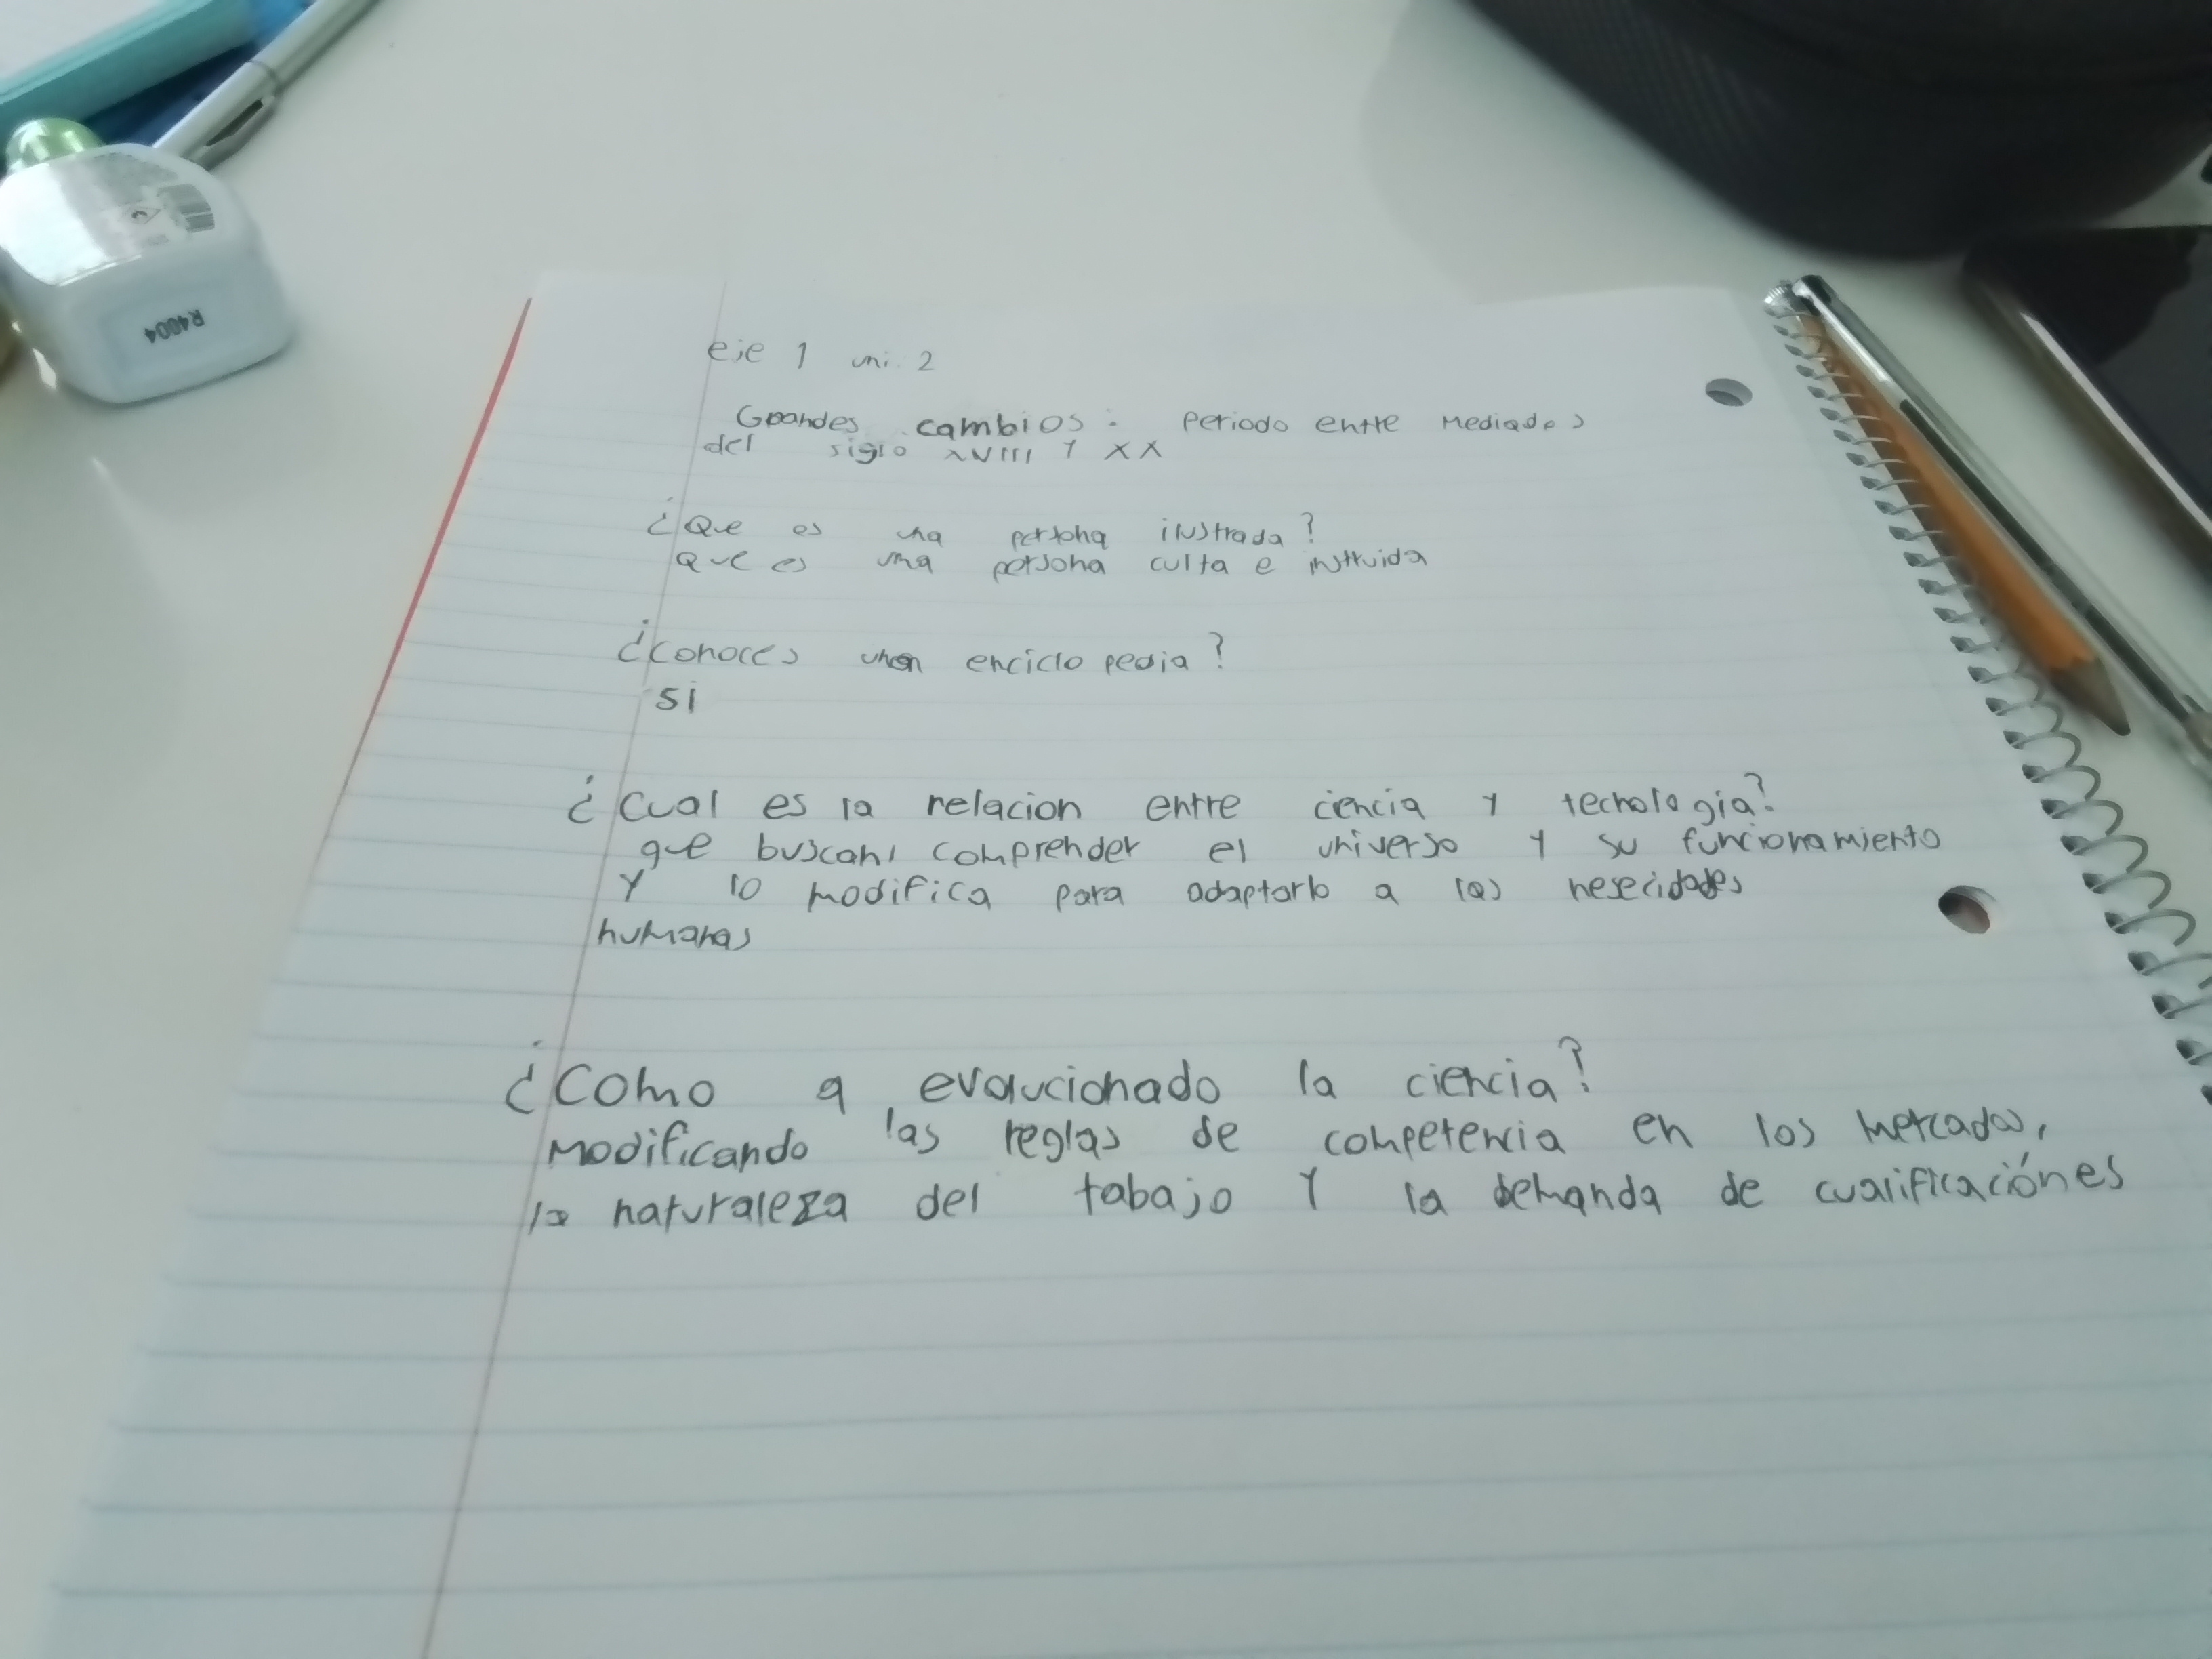 R4004
eje 1 uni. 2
Grandes cambios: Periodo entre Mediados
del siglo XVIII Y XX
¿Que es una persona ilustrada?
que es una persona culta e instruida
¿conoces unon enciclo pedia?
si
¿Cual es la relacion entre ciencia y tecnologia?
que buscan, comprender el universo y su funcionamiento
Y lo modifica para adaptarlo a las nesecidades
humanas
¿Como a evolucionado la ciencia?
Modificando las reglas de competencia en los mercados,
la naturaleza del tabajo Y la demanda de cualificaciónes